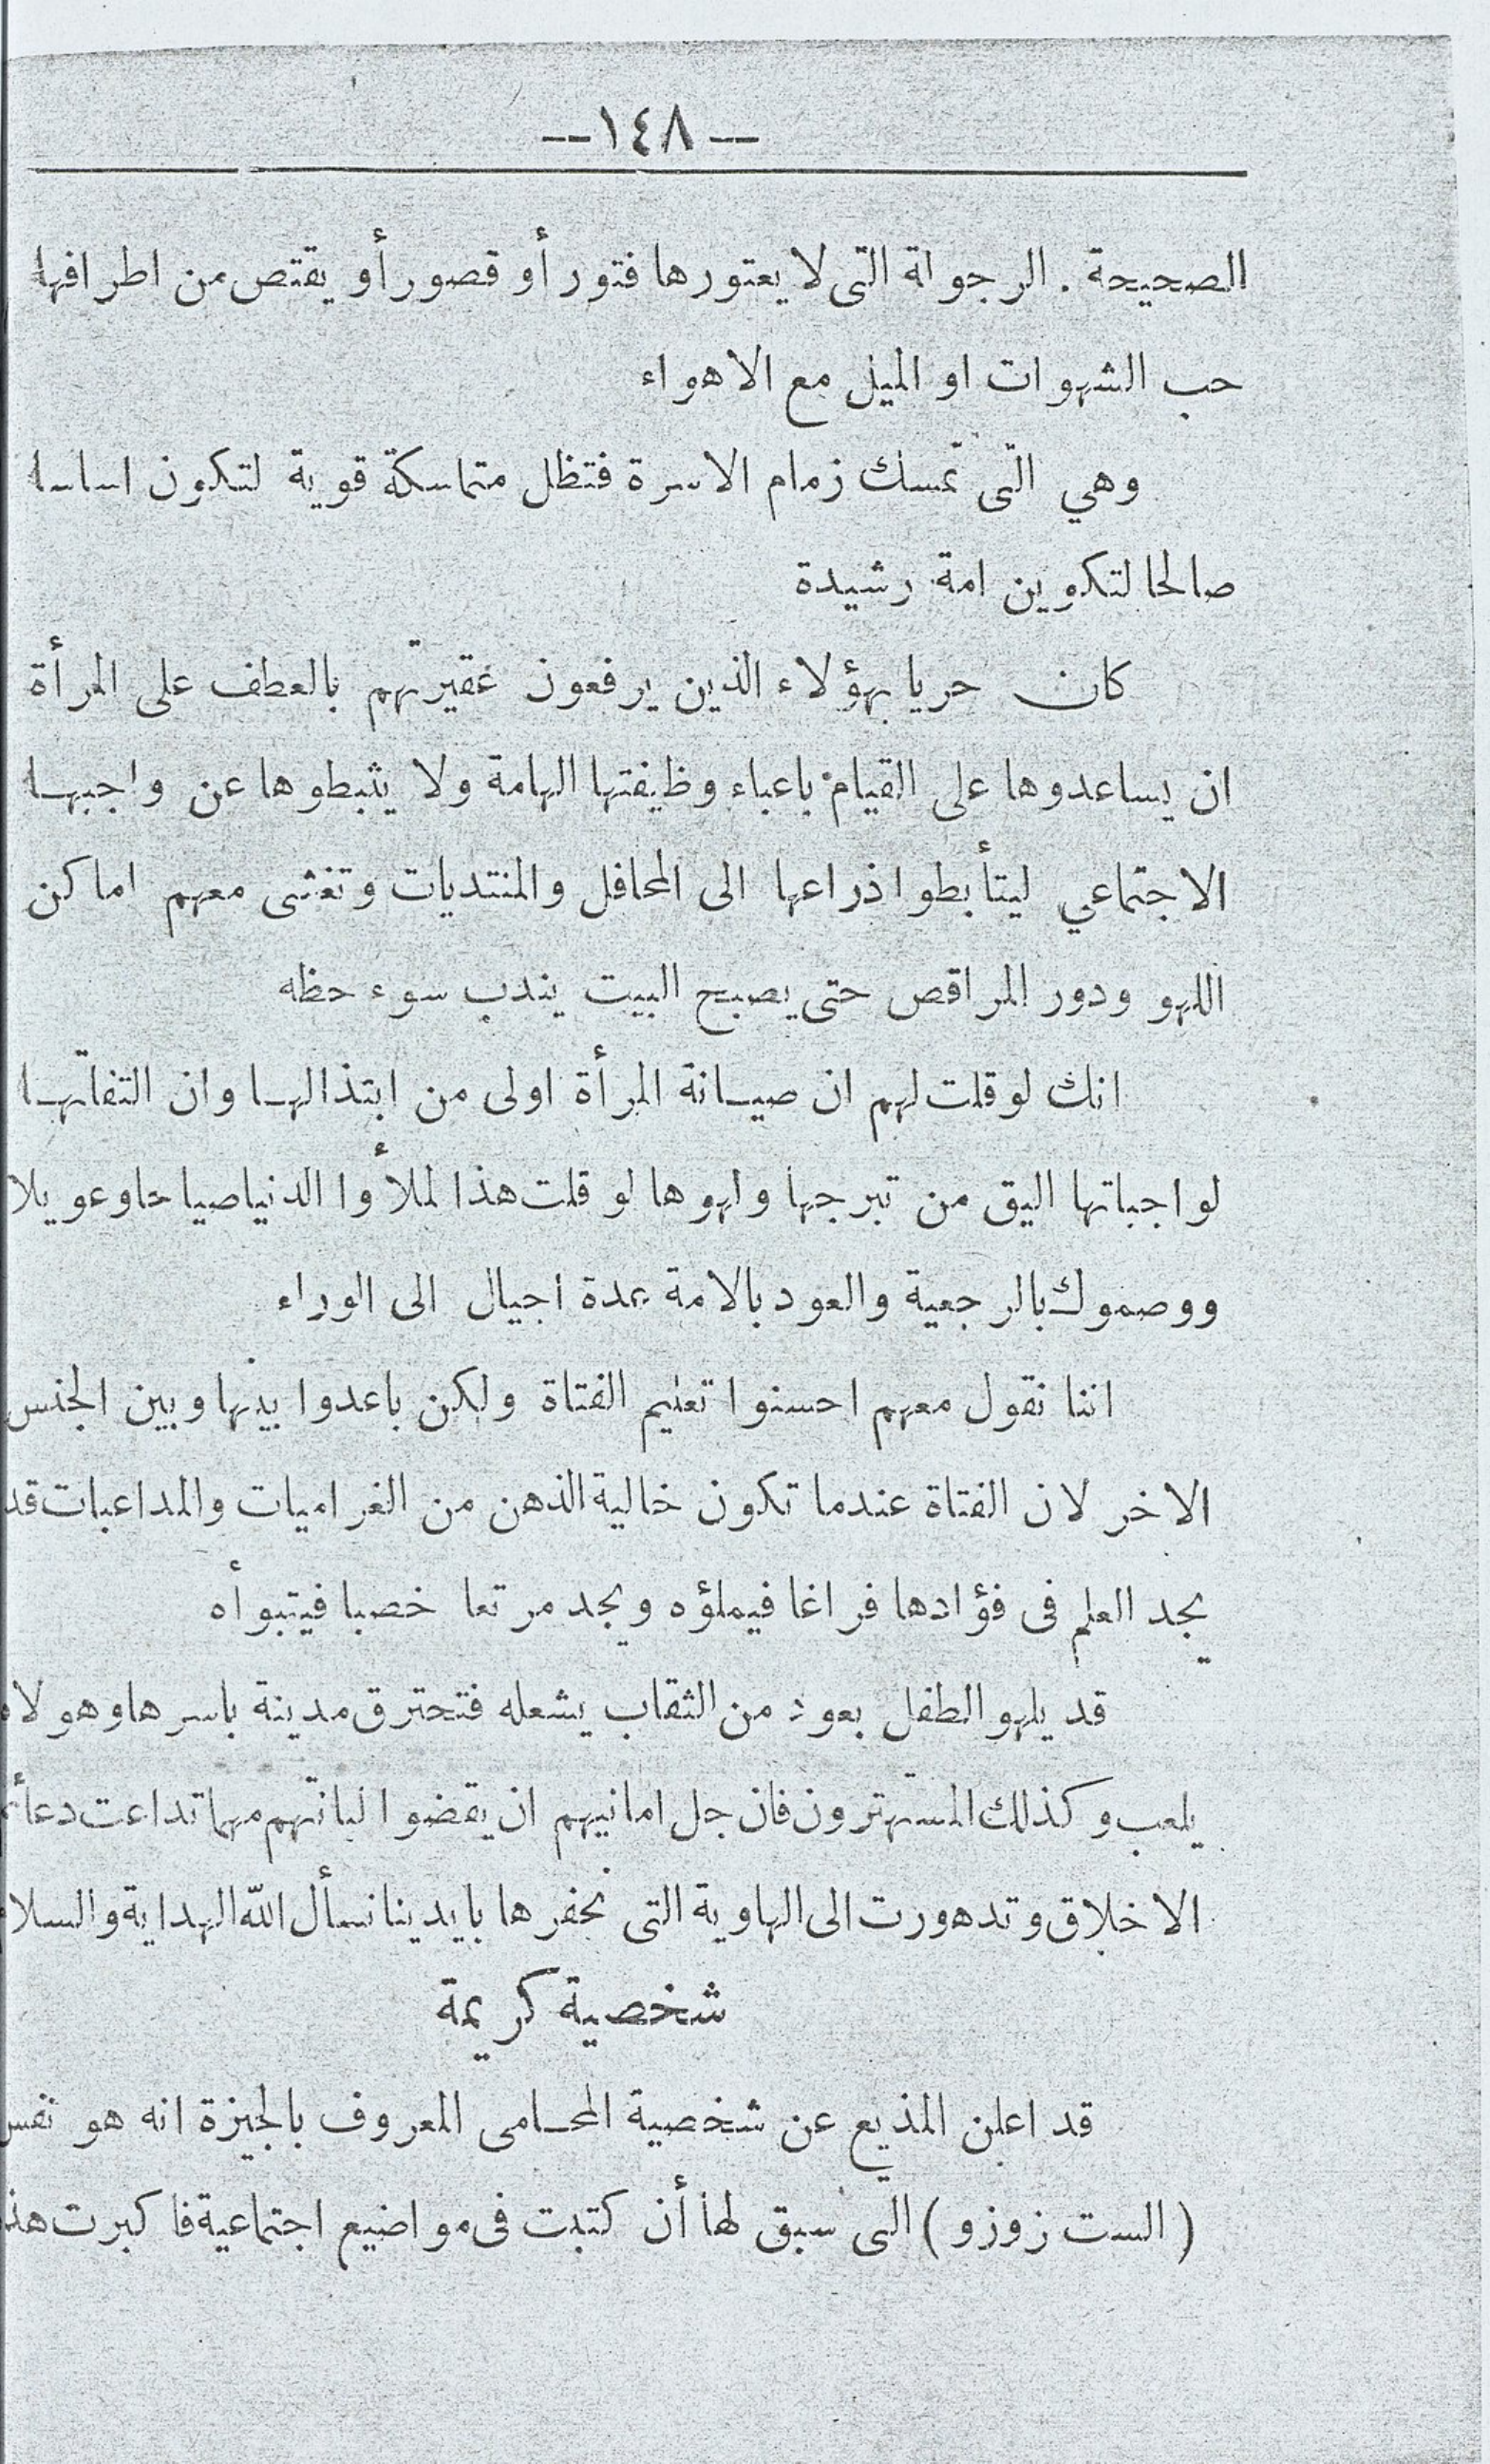 --١٤٨--
الصحيحة . الرجولة التى لا يعتورها فتور أو قصور أو يقتص من اطرافها
حب الشهوات او الميل مع الاهواء
وهي التى تمسك زمام الاسرة فتظل متماسكة قوية لتكون اساسا
صالحا لتكوين امة رشيدة
كان حريا بهؤلاء الذين يرفعون عقيرتهم بالعطف على المرأة
ان يساعدوها على القيام باعباء وظيفتها الهامة ولا يثبطوها عن واجبها
الاجتماعي ليتأبطوا ذراعها الى المحافل والمنتديات وتغشى معهم اماكن
اللهو ودور المراقص حتى يصبح البيت يندب سوء حظه
انك لو قلت لهم ان صيانة المرأة اولى من ابتذالها وان التفاتها
لواجباتها اليق من تبرجها ولهوها لو قلت هذا لملأوا الدنيا صياحا وعويلا
ووصموك بالرجعية والعود بالامة عدة اجيال الى الوراء
اننا نقول معهم احسنوا تعليم الفتاة ولكن باعدوا بينها وبين الجنس
الاخر لان الفتاة عندما تكون خالية الذهن من الغراميات والمداعبات قد
يجد العلم فى فؤادها فراغا فيملؤه ويجد مرتعا خصبا فيتبوأه
قد يلهو الطفل بعود من الثقاب يشعله فتحترق مدينة باسرها وهو لاه
يلعب وكذلك المستهترون فان جل امانيهم ان يقضوا لباناتهم مهما تداعت
الاخلاق وتدهورت الى الهاوية التى نحفرها بايدينا نسأل الله الهداية
شخصية كريمة
قد اعلن المذيع عن شخصية المحامى المعروف بالجيزة انه هو نفس
( الست زوزو ) التى سبق لها أن كتبت فى مواضيع اجتماعية فاكبرت